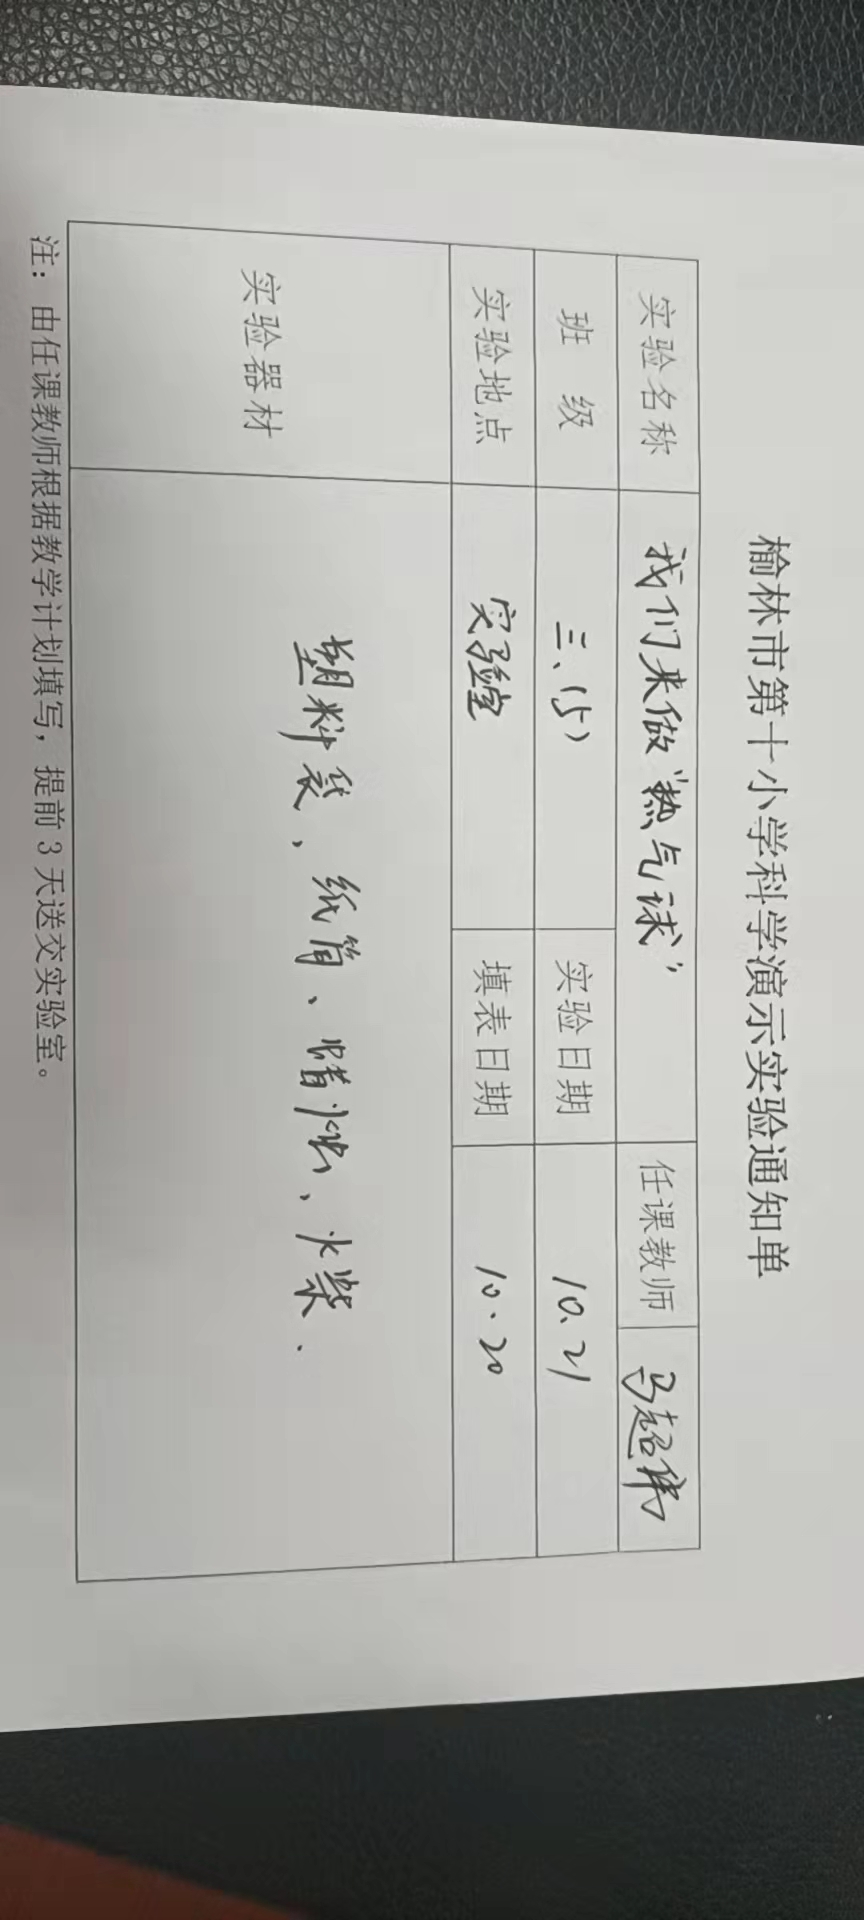 榆林市第十小学科学演示实验通知单
实验名称 我们来做“热气球” 任课教师 马超伟
班 级 三、(5) 实验日期 10.21
实验地点 实验室 填表日期 10.20
实验器材 塑料袋、纸筒、蜡烛、火柴.
注：由任课教师根据教学计划填写，提前 3 天送交实验室。